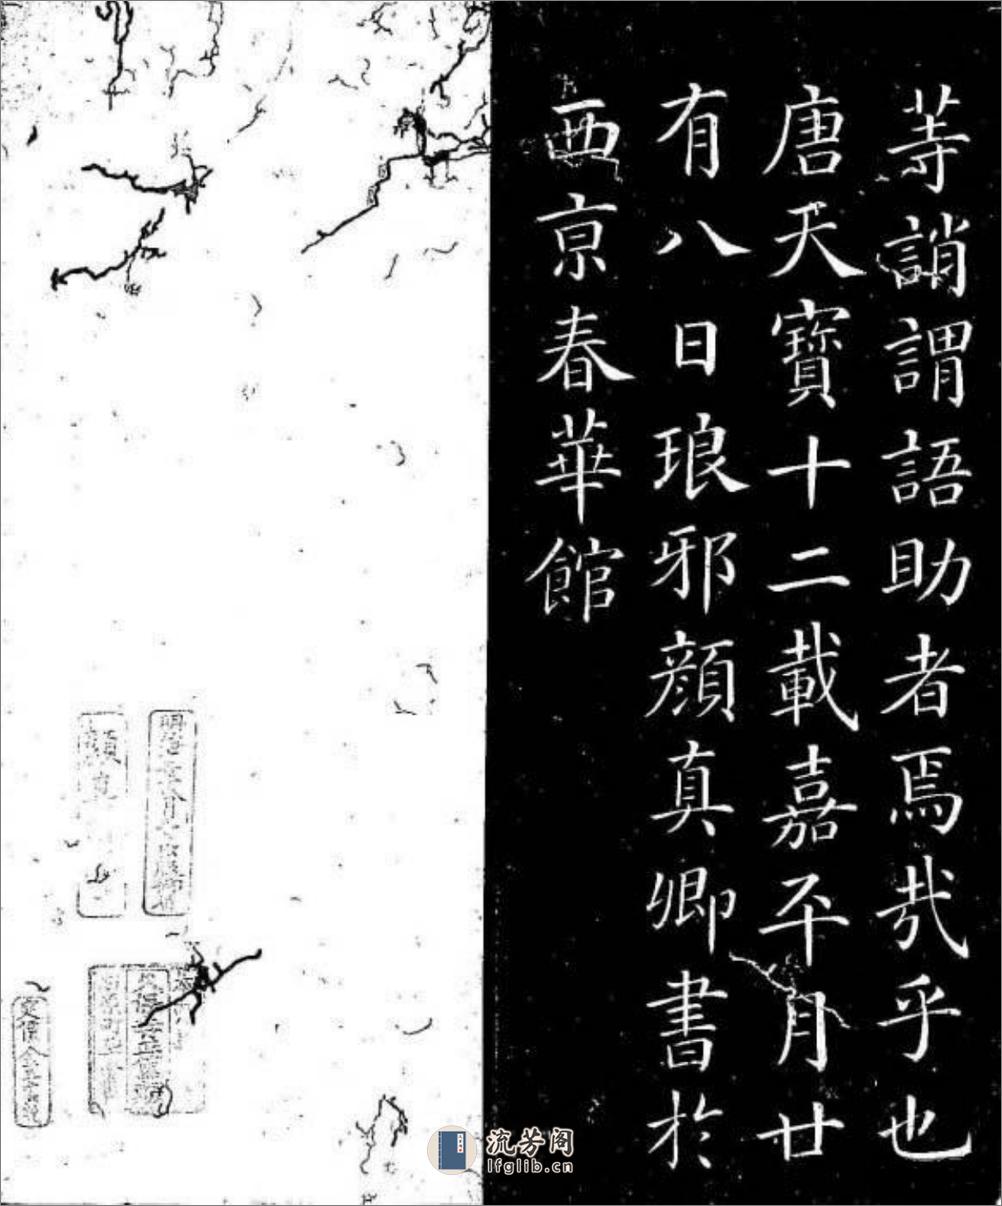 等誚謂語助者焉哉乎也
唐天寳十二載嘉平月廿
有八日琅邪顔真卿書於
西京春華館
流芳阁
lfglib.cn